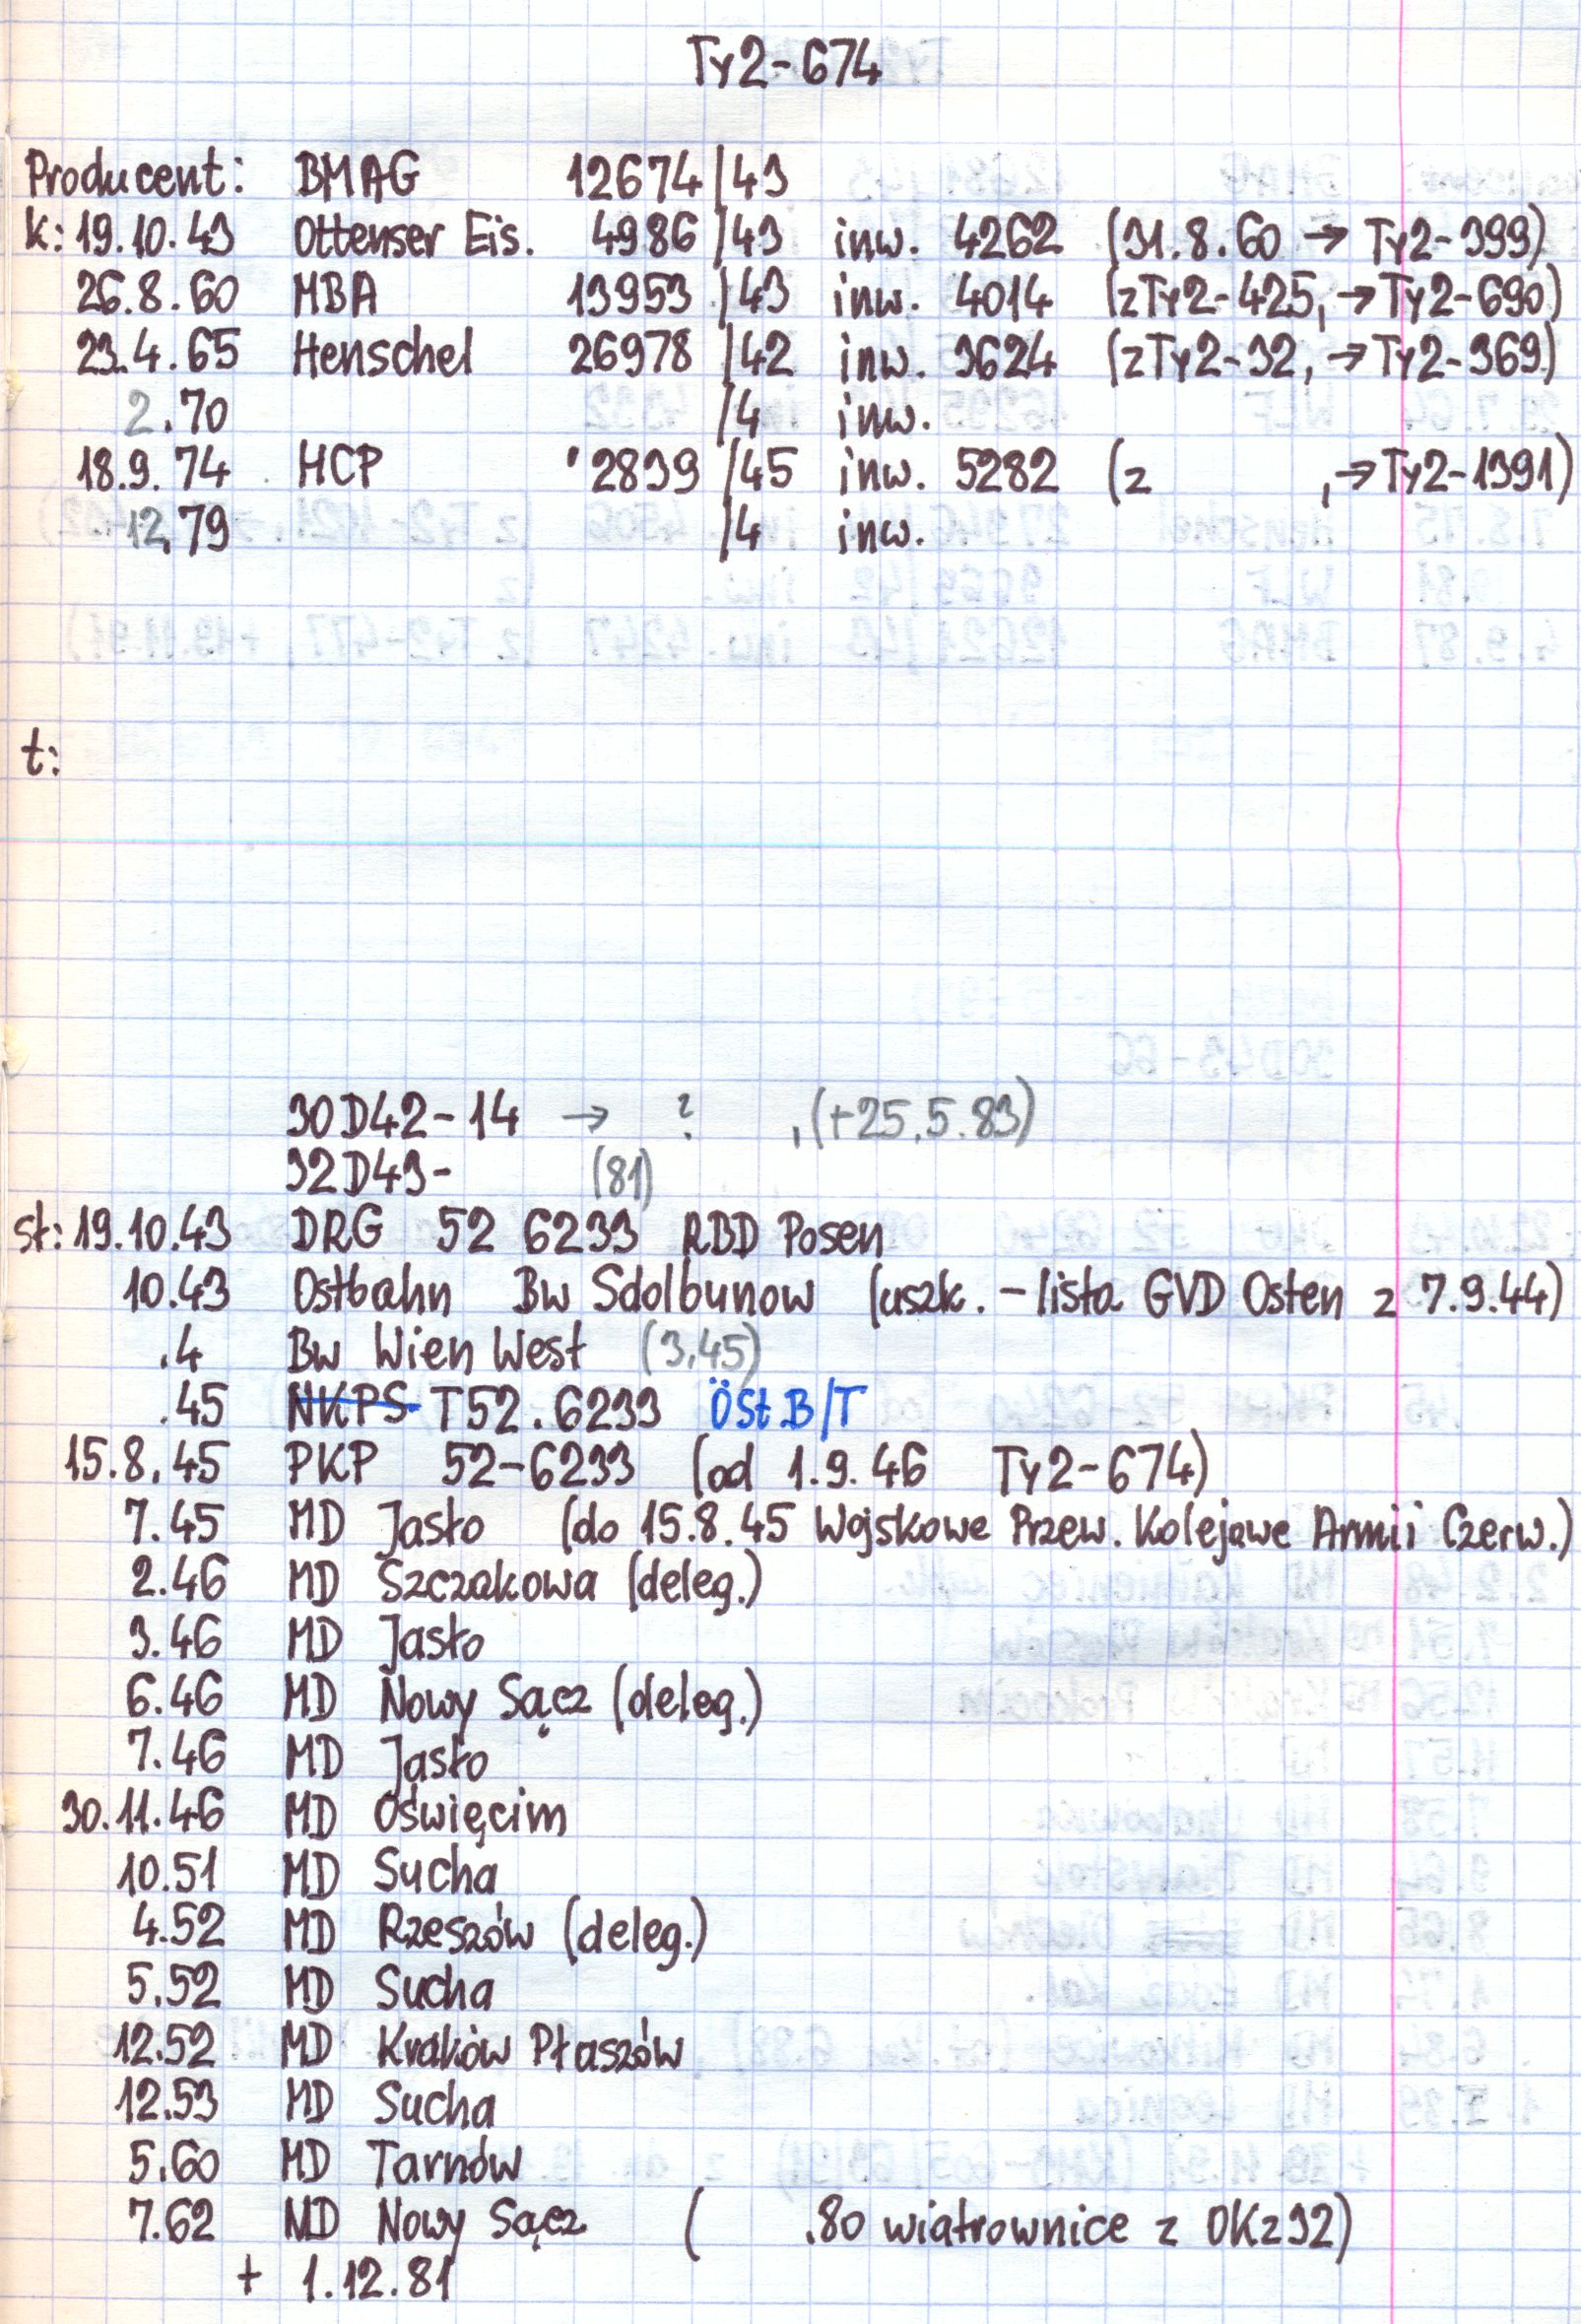 Ty2-674
Producent: BMAG 12674/43
k: 19.10.43 Ottenser Eis. 4986/43 inw. 4262 (31.8.60 → Ty2-399)
26.8.60 MBA 13953/43 inw. 4014 (z Ty2-425, → Ty2-690)
23.4.65 Henschel 26978/42 inw. 3624 (z Ty2-32, → Ty2-369)
2.70 /4 inw.
18.9.74 HCP 2839/45 inw. 5282 (z , → Ty2-1391)
12.79 /4 inw.
t:
30D42-14 → ? , (+25.5.83)
32D43- (81)
st: 19.10.43 DRG 52 6233 RBD Posen
10.43 Ostbahn Bw Sdolbunow (uszk. - lista GVD Osten z 7.9.44)
.4 Bw Wien West (3.45)
.45 NKPS T52.6233 ÖSt.B/T
15.8.45 PKP 52-6233 (od 1.9.46 Ty2-674)
7.45 MD Jasło (do 15.8.45 Wojskowe Przew. Kolejowe Armii Czerw.)
2.46 MD Szczakowa (deleg.)
3.46 MD Jasło
6.46 MD Nowy Sącz (deleg.)
7.46 MD Jasło
30.11.46 MD Oświęcim
10.51 MD Sucha
4.52 MD Rzeszów (deleg.)
5.52 MD Sucha
12.52 MD Kraków Płaszów
12.53 MD Sucha
5.60 MD Tarnów
7.62 MD Nowy Sącz ( .80 wiatrownice z OKz32)
+ 1.12.81